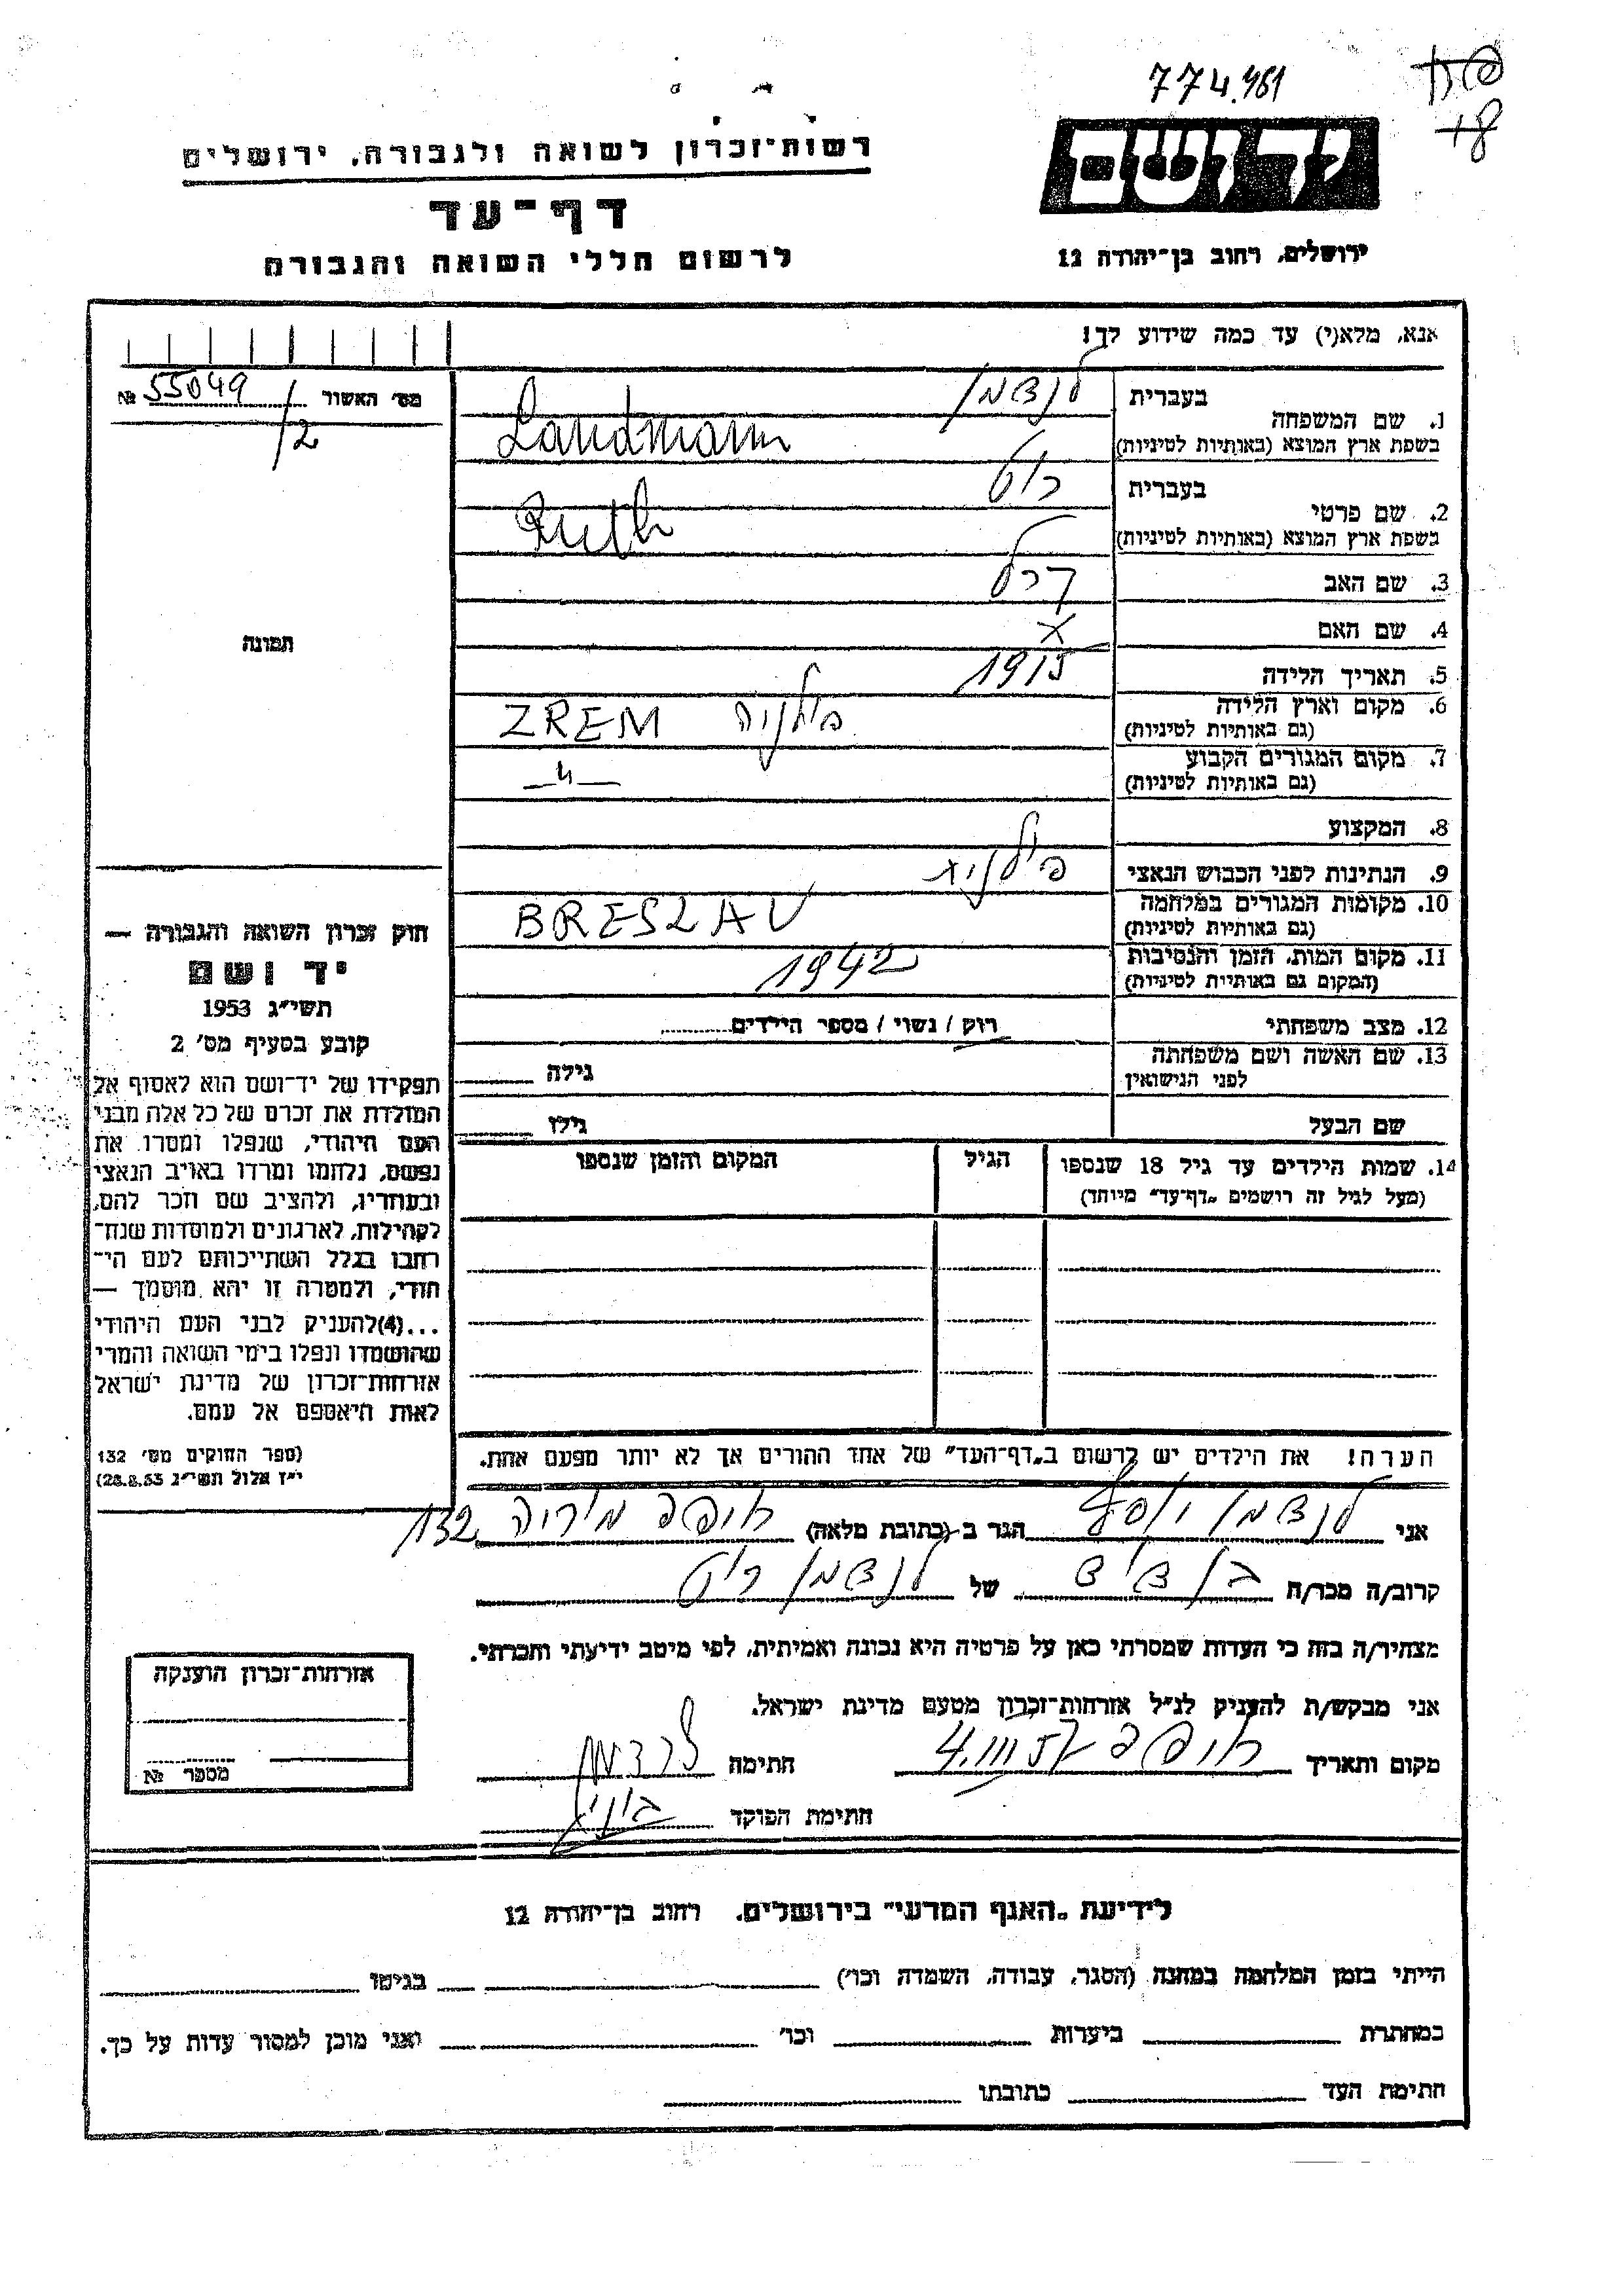 774.461
יד ושם
רשות־זכרון לשואה ולגבורה, ירושלים
דף־עד
לרשום חללי השואה והגבורה
ירושלים, רחוב בן־יהודה 12
אנא, מלא(י) עד כמה שידוע לך!
מס' האשור № 55049/2
1. שם המשפחה
בעברית לנדמן
בשפת ארץ המוצא (באותיות לטיניות) Landmann
2. שם פרטי
בעברית רוט
בשפת ארץ המוצא (באותיות לטיניות) Ruth
3. שם האב
4. שם האם X
5. תאריך הלידה 1915
6. מקום וארץ הלידה פולניה ZREM
(גם באותיות לטיניות)
7. מקום המגורים הקבוע —"—
(גם באותיות לטיניות)
8. המקצוע
9. הנתינות לפני הכבוש הנאצי פולנית
10. מקומות המגורים במלחמה BRESLAU
(גם באותיות לטיניות)
11. מקום המות, הזמן והנסיבות 1942
(המקום גם באותיית לטיניות)
12. מצב משפחתי רוק / נשוי / מספר הילדים
13. שם האשה ושם משפחתה
לפני הנישואין גילה
שם הבעל גילו
14. שמות הילדים עד גיל 18 שנספו הגיל המקום והזמן שנספו
(מעל לגיל זה רושמים „דף־עד" מיוחד)
הערה! את הילדים יש לרשום ב„דף־העד" של אחד ההורים אך לא יותר מפעם אחת.
תמונה
חוק זכרון השואה והגבורה —
יד ושם
תשי"ג 1953
קובע בסעיף מס' 2
תפקידו של יד־ושם הוא לאסוף אל
המולדת את זכרם של כל אלה מבני
העם היהודי, שנפלו ומסרו את
נפשם, נלחמו ומרדו באויב הנאצי
ובעוזריו, ולהציב שם וזכר להם,
לקהילות, לארגונים ולמוסדות שנח־
רבו בגלל השתייכותם לעם הי־
הודי, ולמטרה זו יהא מוסמך —
...(4)להעניק לבני העם היהודי
שהושמדו ונפלו בימי השואה והמרי
אזרחות־זכרון של מדינת ישראל
לאות היאספם אל עמם.
(ספר החוקים מס' 132
י"ז אלול תשי"ג 28.8.53)
אני לנדמן יוסף הגר ב־(כתובת מלאה) חיפה מוריה 132
קרוב/ה מכר/ה בן דוד של לנדמן רוט
מצהיר/ה בזה כי העדות שמסרתי כאן על פרטיה היא נכונה ואמיתית, לפי מיטב ידיעתי והכרתי.
אני מבקש/ת להעניק לנ"ל אזרחות־זכרון מטעם מדינת ישראל.
מקום ותאריך חיפה 4.III חתימה לנדמן
חתימת הפוקד
אזרחות־זכרון הוענקה
מספר №
לידיעת „האגף המדעי" בירושלים, רחוב בן־יהודה 12
הייתי בזמן המלחמה במחנה (הסגר, עבודה, השמדה וכו') בגיטו
במחתרת ביערות וכו' ואני מוכן למסור עדות על כך.
חתימת העד כתובתו